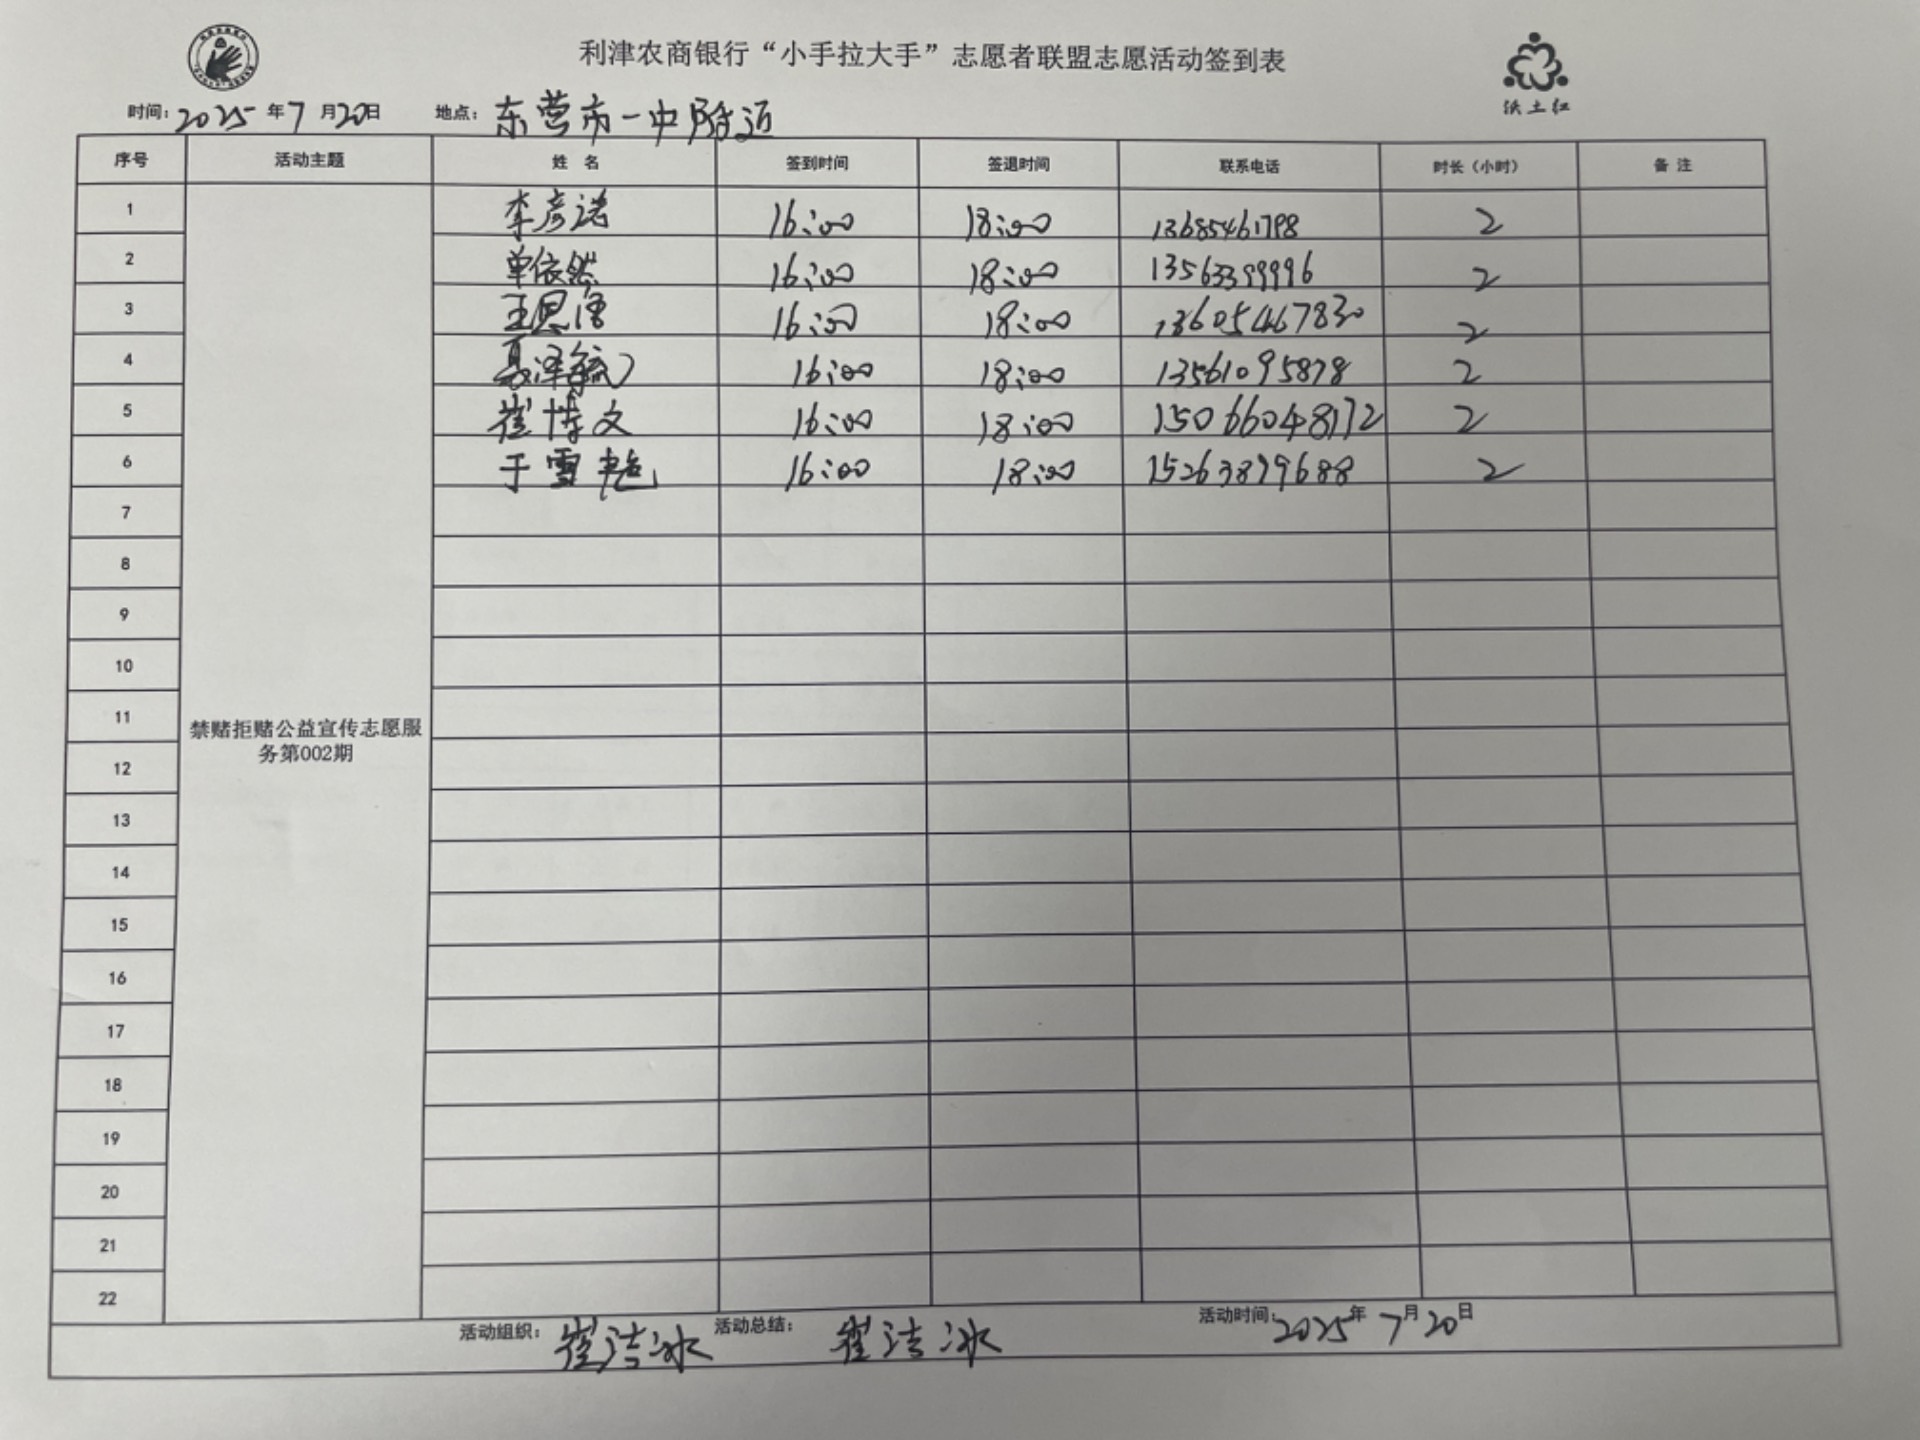 利津农商银行“小手拉大手”志愿者联盟志愿活动签到表
渼土红
时间：2025年7月20日 地点：东营市一中附近
序号 活动主题 姓名 签到时间 签退时间 联系电话 时长（小时） 备注
1 李彦诺 16:00 18:00 13685461798 2
2 单依然 16:00 18:00 13563399996 2
3 王思涵 16:00 18:00 13605467830 2
4 16:00 18:00 13561095878 2
5 崔博文 16:00 18:00 15066048172 2
6 于雪艳 16:00 18:00 15263899688 2
7
8
9
10
11
禁赌拒赌公益宣传志愿服
务第002期
12
13
14
15
16
17
18
19
20
21
22
活动组织：崔洁冰 活动总结：崔洁冰 活动时间：2025年7月20日